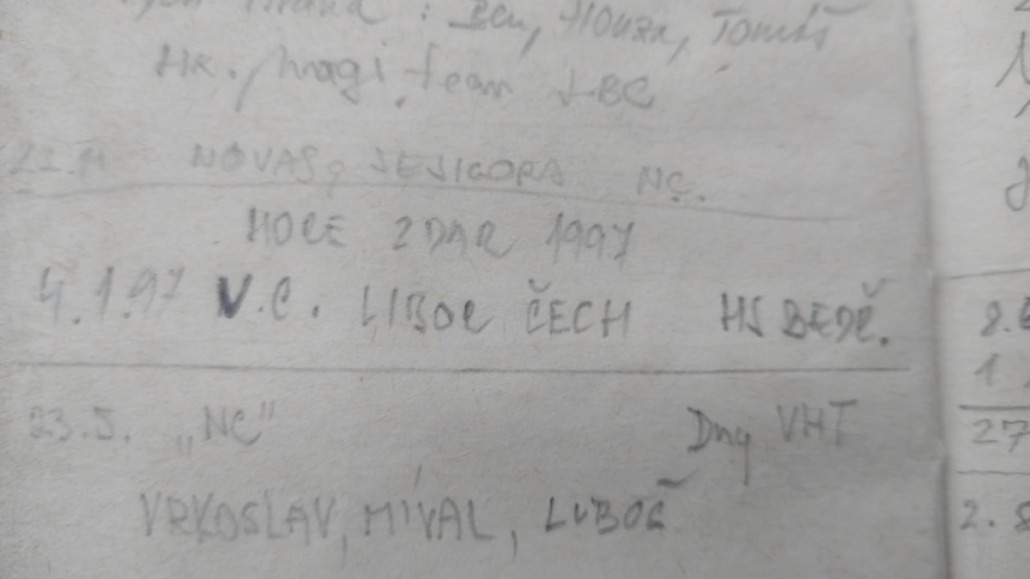 : Ben, Honza, Tomáš
HK. magi team LBC
NOVAS, NC.
HORE ZDAR 1997
4.1.97 V.C. LIBOR ČECH HS BEDŘ.
23.5. „NC" Dny VHT
VRKOSLAV, MÍVAL, LUBOŠ
27